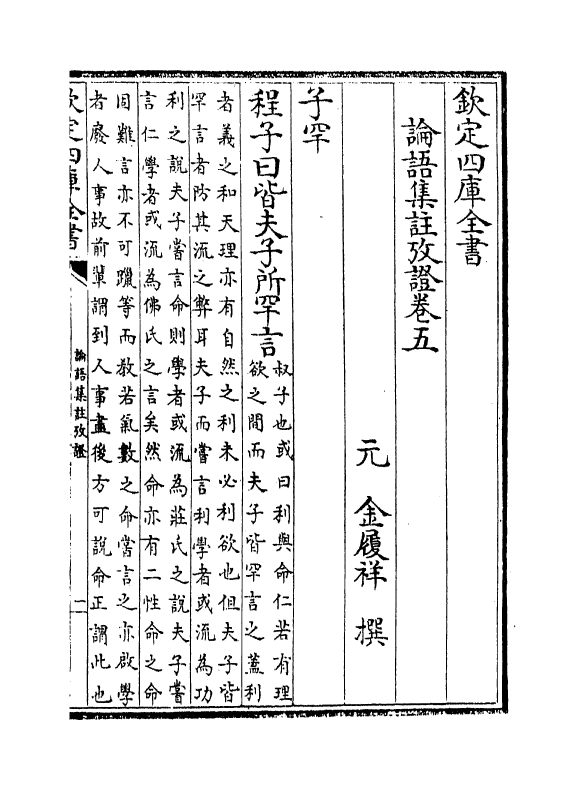 欽定四庫全書
論語集註攷證卷五
元 金履祥 撰
子罕
程子曰皆夫子所罕言
叔子也或曰利與命仁若有理
欲之間而夫子皆罕言之蓋利
者義之和天理亦有自然之利未必利欲也但夫子皆
罕言者防其流之弊耳夫子而嘗言利學者或流為功
利之說夫子嘗言命則學者或流為莊氏之說夫子嘗
言仁學者或流為佛氏之言矣然命亦有二性命之命
固難言亦不可躐等而教若氣數之命嘗言之亦啟學
者廢人事故前輩謂到人事盡後方可說命正謂此也
欽定四庫全書
論語集註攷證
一